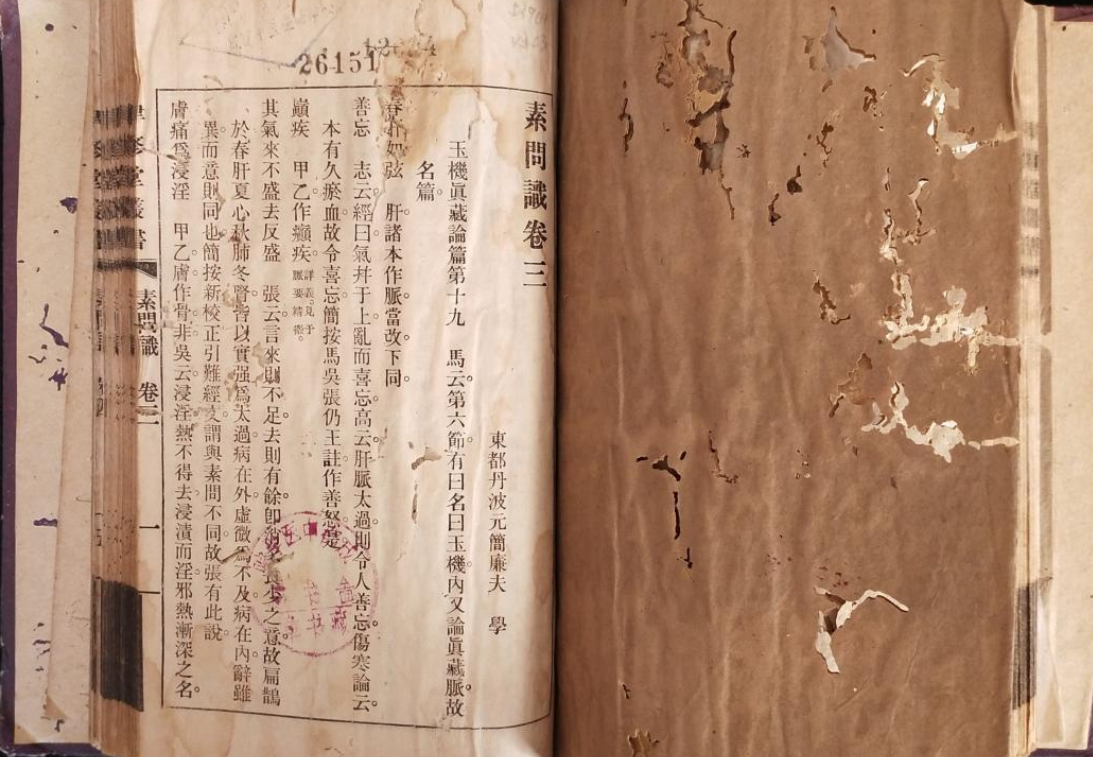 26151
素問識卷三
東都丹波元簡廉夫　學
玉機眞藏論篇第十九　馬云。第六節有曰名曰玉機。內又論眞藏脈。故
名篇。
如弦　肝諸本作脈。當改。下同。
善忘　志云。經曰。氣幷于上。亂而喜忘。高云。肝脈太過。則令人善忘。傷寒論云。
本有久瘀血。故令喜忘。簡按馬吳張仍王註作善怒。
巔疾　甲乙作癲疾。詳義見于脈要精微。
其氣來不盛去反盛　張云。言來則不足。去則有餘。卽之意。故扁鵲
於春肝夏心秋肺冬腎。皆以實强爲太過。病在外。虛微爲不及。病在內。辭雖
異而意則同也。簡按新校正引難經文。謂與素問不同。故張有此說。
膚痛爲浸淫　甲乙膚作骨。非。吳云。浸淫。熱不得去。浸漬而淫。邪熱漸深之名。
素問識　卷三
一